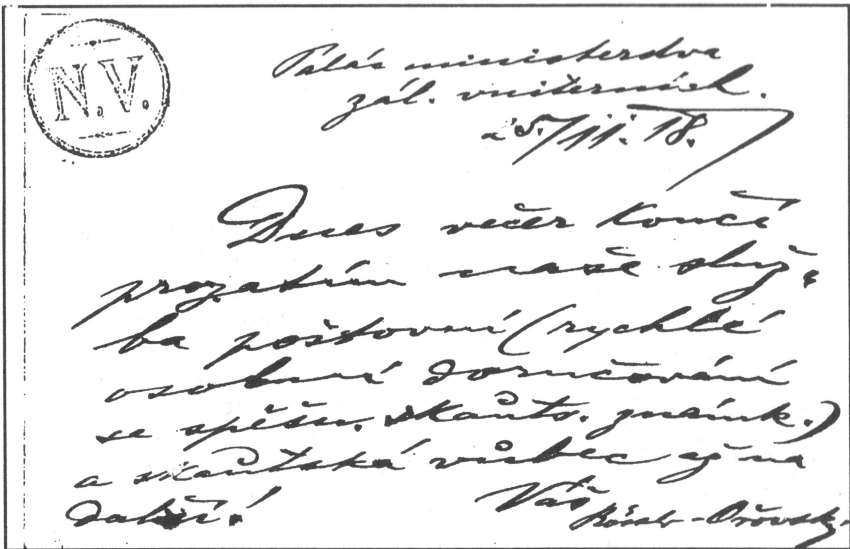 N.V.
Palác ministerstva
zál. vniterních.
d 5./11. 18.
Dnes večer končí
prozatím naše služ-
ba poštovní (rychlé
osobní doručování
se spěšn. skauts. známk.)
a skautská vůbec až na
další!
Váš
Rössler-Ořovský